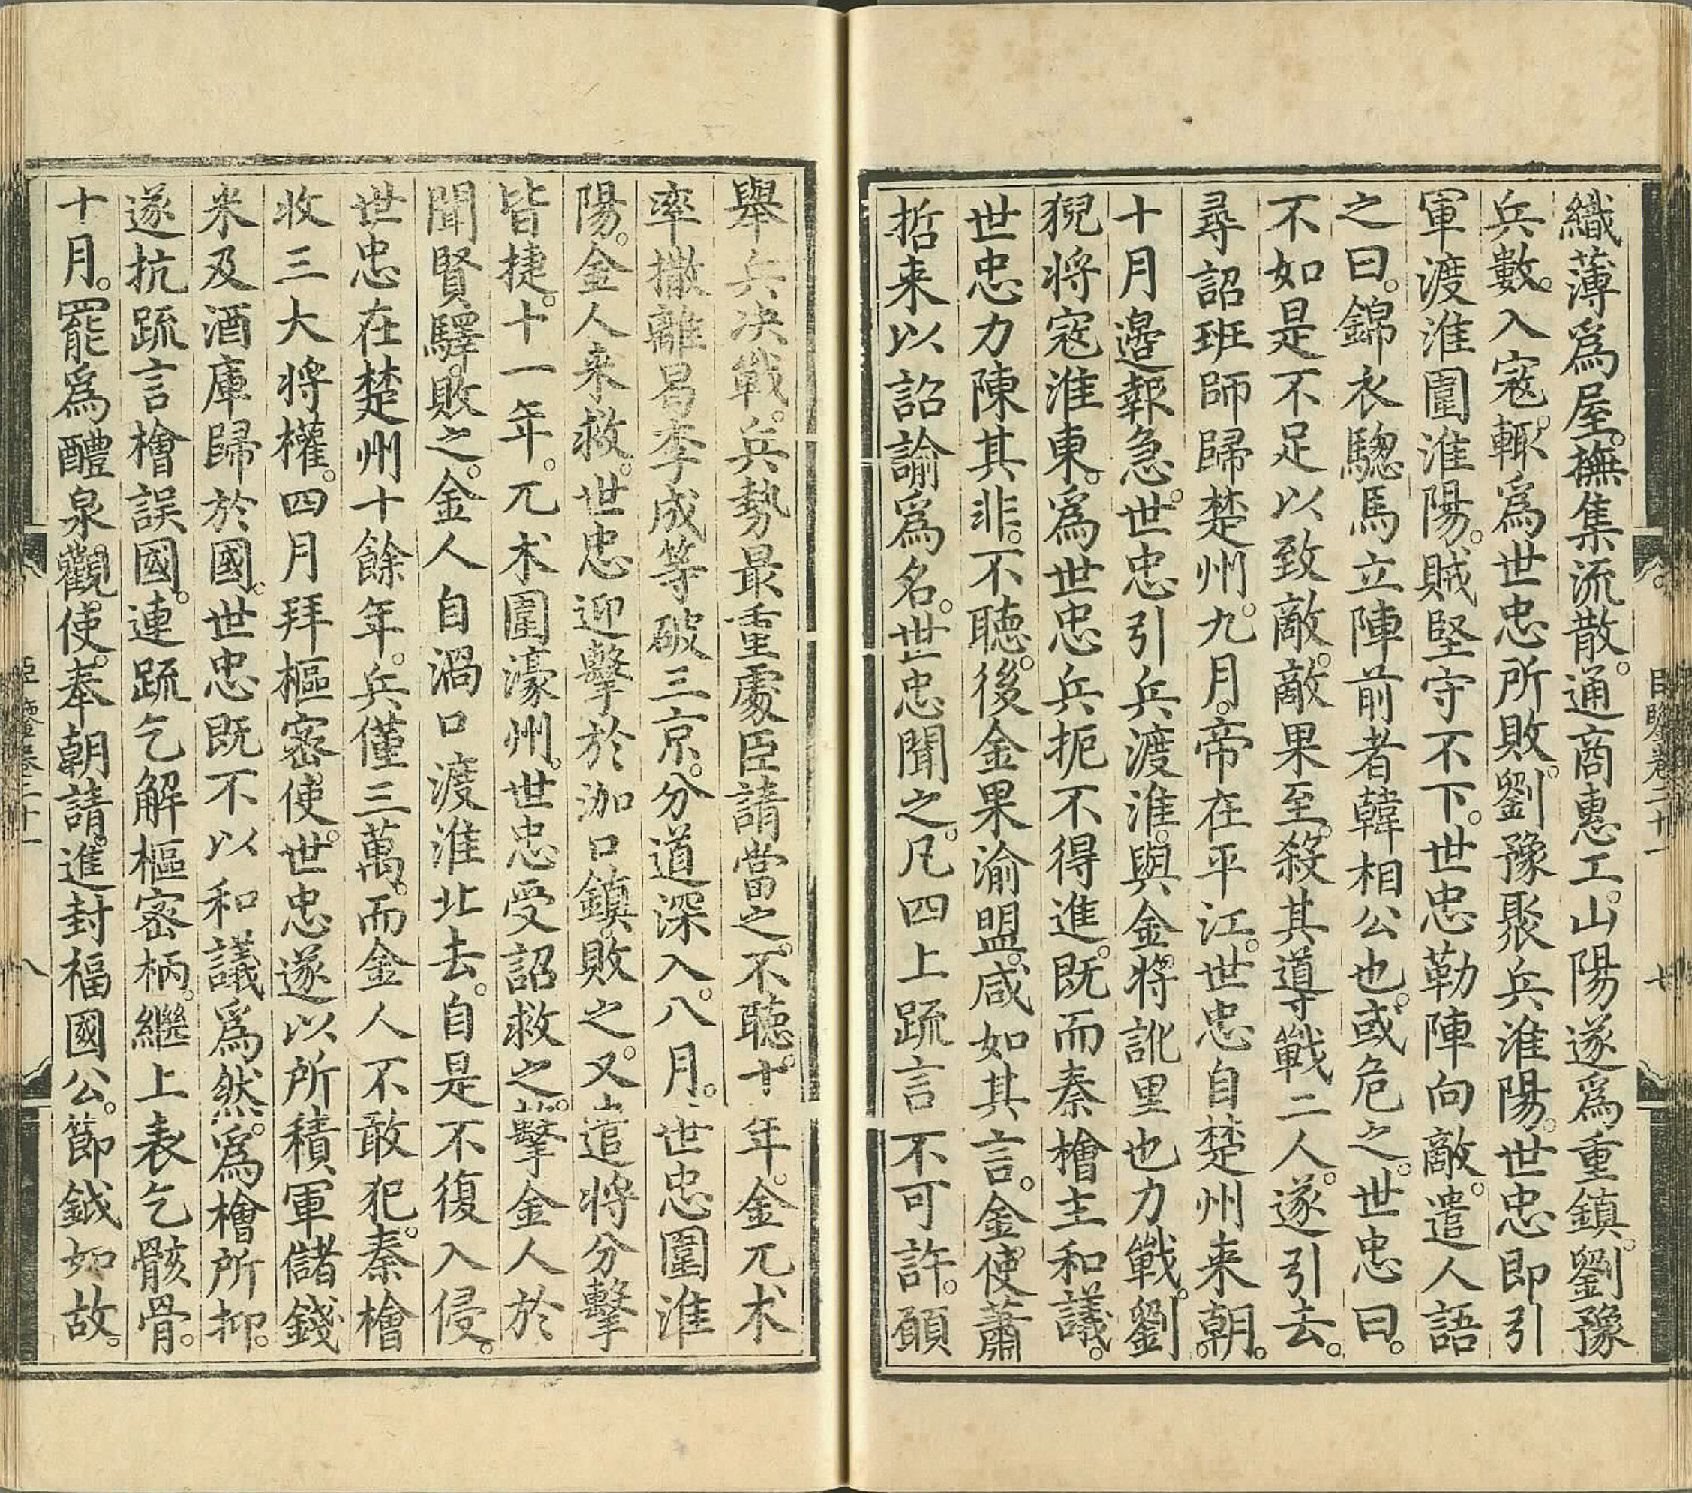 織薄爲屋。撫集流散。通商惠工。山陽遂爲重鎮。劉豫
兵數。入寇。輒爲世忠所敗。劉豫聚兵淮陽。世忠即引
軍渡淮圍淮陽。賊堅守不下。世忠勒陣向敵。遣人語
之曰。錦衣驄馬立陣前者韓相公也。或危之。世忠曰。
不如是不足以致敵。敵果至。殺其導戰二人。遂引去。
尋詔班師歸楚州。九月。帝在平江。世忠自楚州来朝。
十月邊報急。世忠引兵渡淮。與金將訛里也力戰。劉
猊将寇淮東。爲世忠兵扼不得進。既而秦檜主和議。
世忠力陳其非。不聽。後金果渝盟。咸如其言。金使蕭
哲来以詔諭爲名。世忠聞之。凡四上疏言不可許。願
舉兵决戰。兵勢最重處臣請當之。不聽。十年。金兀朮
率撒離曷李成等破三京。分道深入。八月。世忠圍淮
陽。金人来救。世忠迎擊於泇口鎮敗之。又遣将分擊
皆捷。十一年。兀朮圍濠州。世忠受詔救之。擊金人於
聞賢驛。敗之。金人自渦口渡淮北去。自是不復入侵。
世忠在楚州十餘年。兵僅三萬。而金人不敢犯。秦檜
收三大將權。四月拜樞密使。世忠遂以所積軍儲錢
米及酒庫歸於國。世忠既不以和議爲然。爲檜所抑。
遂抗疏言檜誤國。連疏乞解樞密柄。繼上表乞骸骨。
十月。罷爲醴泉觀使。奉朝請。進封福國公。節鉞如故。